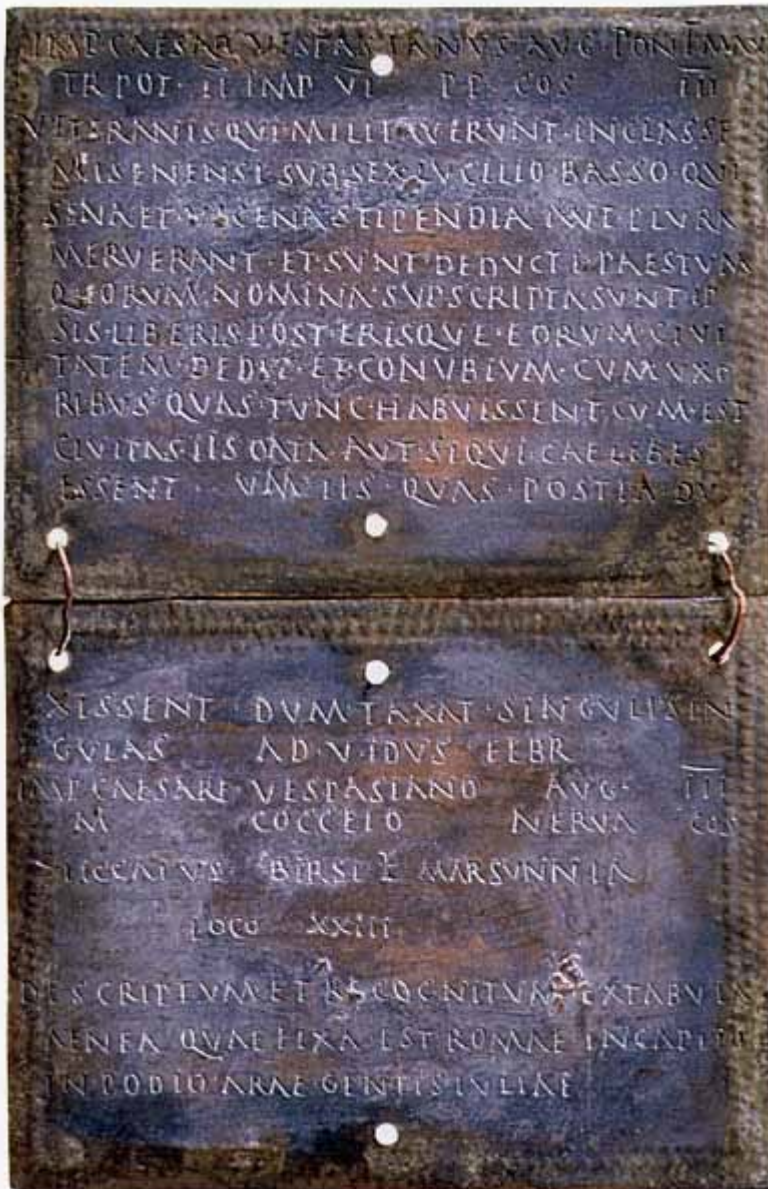 IMP CAESAR VESPASIANVS AVG PONT MAX
TR POT II IMP VI P P COS III
VETERANIS QVI MILITAVERVNT IN CLASSE
MISENENSI SVB SEX LVCILIO BASSO QVI
SENA ET VICENA STIPENDIA AVT PLVRA
MERVERANT ET SVNT DEDVCTI PAESTVM
QVORVM NOMINA SVPSCRIPTA SVNT IP
SIS LIBERIS POSTERISQVE EORVM CIVI
TATEM DEDIT ET CONVBIVM CVM VXO
RIBVS QVAS TVNC HABVISSENT CVM EST
CIVITAS IIS DATA AVT SIQVI CAELIBES
ESSENT CVM IIS QVAS POSTEA DV
XISSENT DVM TAXAT SINGVLI SIN
GVLAS A D V IDVS FEBR
IMP CAESARE VESPASIANO AVG III
M COCCEIO NERVA COS
BIRSI F MARSVNNIA
LOCO XXIII
DESCRIPTVM ET RECOGNITVM EX TABVLA
AENEA QVAE FIXA EST ROMAE IN CAPITO
IN PODIO ARAE GENTIS IVLIAE